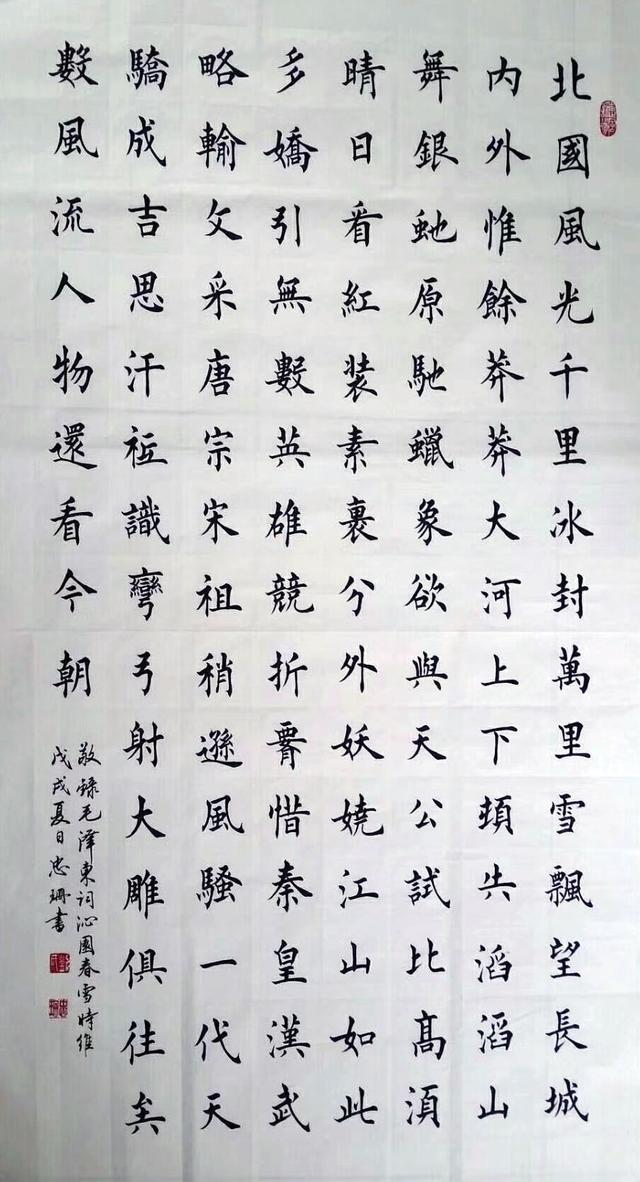 北國風光千里冰封萬里雪飄望長城
内外惟餘莽莽大河上下頓失滔滔山
舞銀虵原馳蠟象欲與天公試比高須
晴日看紅装素裹分外妖嬈江山如此
多嬌引無數英雄競折腰惜秦皇漢武
略輸文采唐宗宋祖稍遜風騷一代天
驕成吉思汗祗識彎弓射大雕俱往矣
數風流人物還看今朝
敬錄毛澤東詞沁園春雪時維
戊戌夏日忠珊書